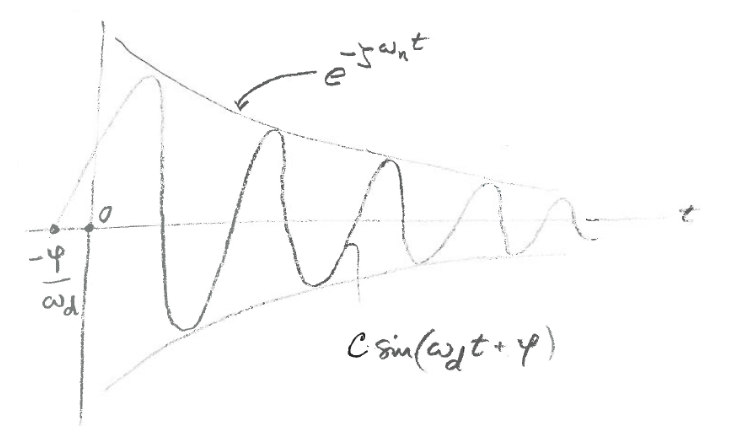 e^{-ζω_n t}
0
t
-φ/ω_d
C sin(ω_d t + φ)